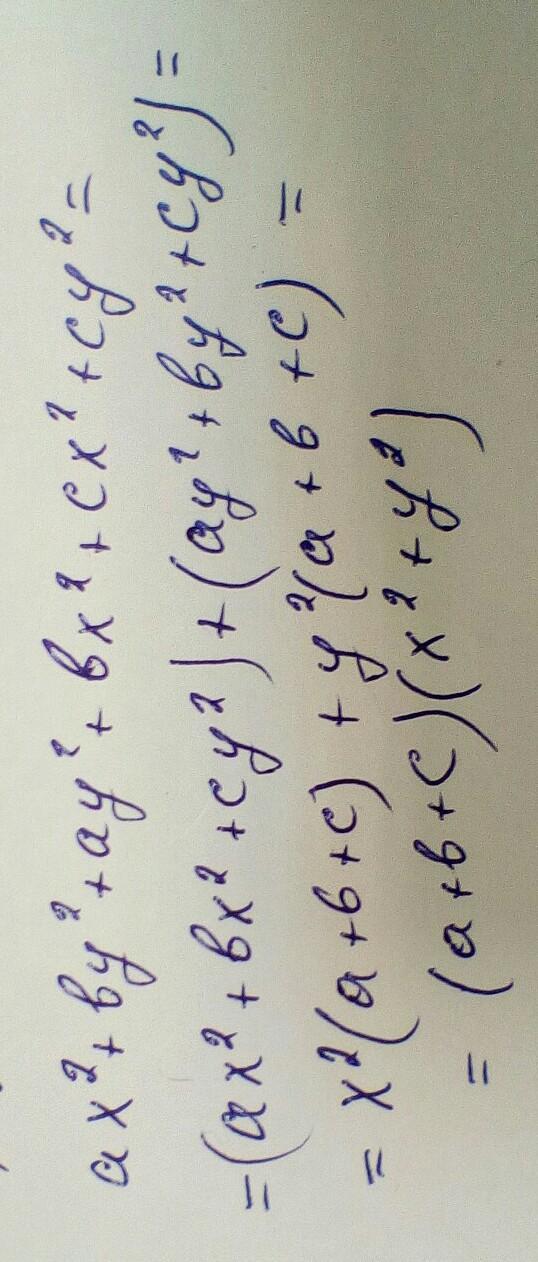 ax² + by² + ay² + bx² + cx² + cy² =
= (ax² + bx² + cy²) + (ay² + by² + cy²) =
= x²(a + b + c) + y²(a + b + c) =
= (a + b + c)(x² + y²)